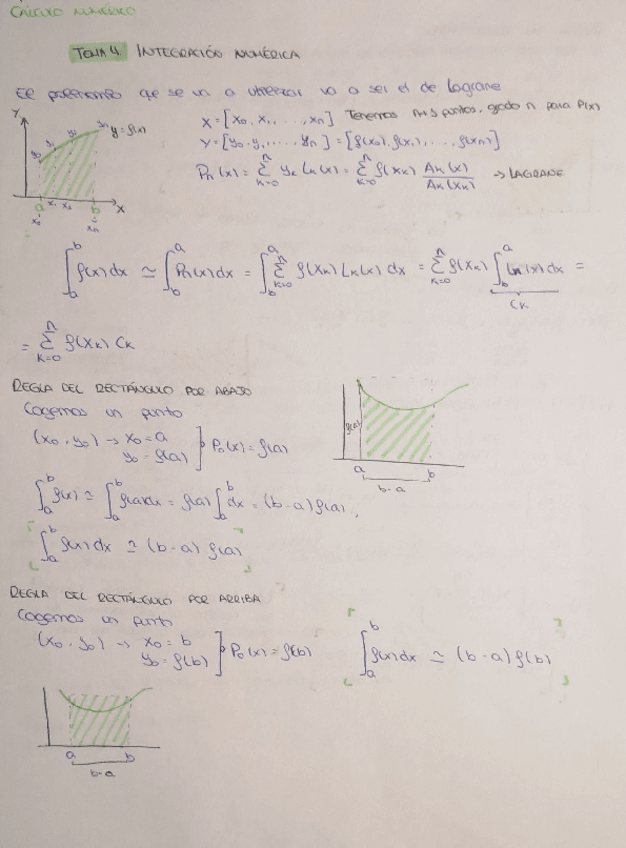 CÁLCULO NUMÉRICO
TEMA 4. INTEGRACIÓN NUMÉRICA
El polinomio que se va a utilizar va a ser el de Lagrane
X = [x₀, x₁, ..., xₙ] Tenemos n+1 puntos, grado n para P(x)
Y = [y₀, y₁, ..., yₙ] = [f(x₀), f(x₁), ..., f(xₙ)]
Pₙ(x) = Σₖ₌₀ⁿ yₖ Lₖ(x) = Σₖ₌₀ⁿ f(xₖ) Aₖ(x)/Aₖ(xₖ) → LAGRANE
Y y₀ y₁ y₂ yₙ y = f(x)
a x₁ x₂ b X
x₀ xₙ
∫ₐᵇ f(x) dx ≃ ∫_b^a Pₙ(x) dx = ∫_b^a Σₖ₌₀ⁿ f(xₖ) Lₖ(x) dx = Σₖ₌₀ⁿ f(xₖ) ∫_b^a Lₖ(x) dx =
Cₖ
= Σₖ₌₀ⁿ f(xₖ) Cₖ
REGLA DEL RECTÁNGULO POR ABAJO
Cogemos un punto
(x₀, y₀) → x₀ = a
y₀ = f(a) ] P₀(x) = f(a)
f(a)
a b
b-a
∫ₐᵇ f(x) ≃ ∫ₐᵇ f(a)dx = f(a) ∫ₐᵇ dx = (b-a) f(a),
∫ₐᵇ f(x) dx ≃ (b-a) f(a)
REGLA DEL RECTÁNGULO POR ARRIBA
Cogemos un punto
(x₀, y₀) → x₀ = b
y₀ = f(b) ] P₀(x) = f(b)
∫ₐᵇ f(x) dx ≃ (b-a) f(b)
a b
b-a